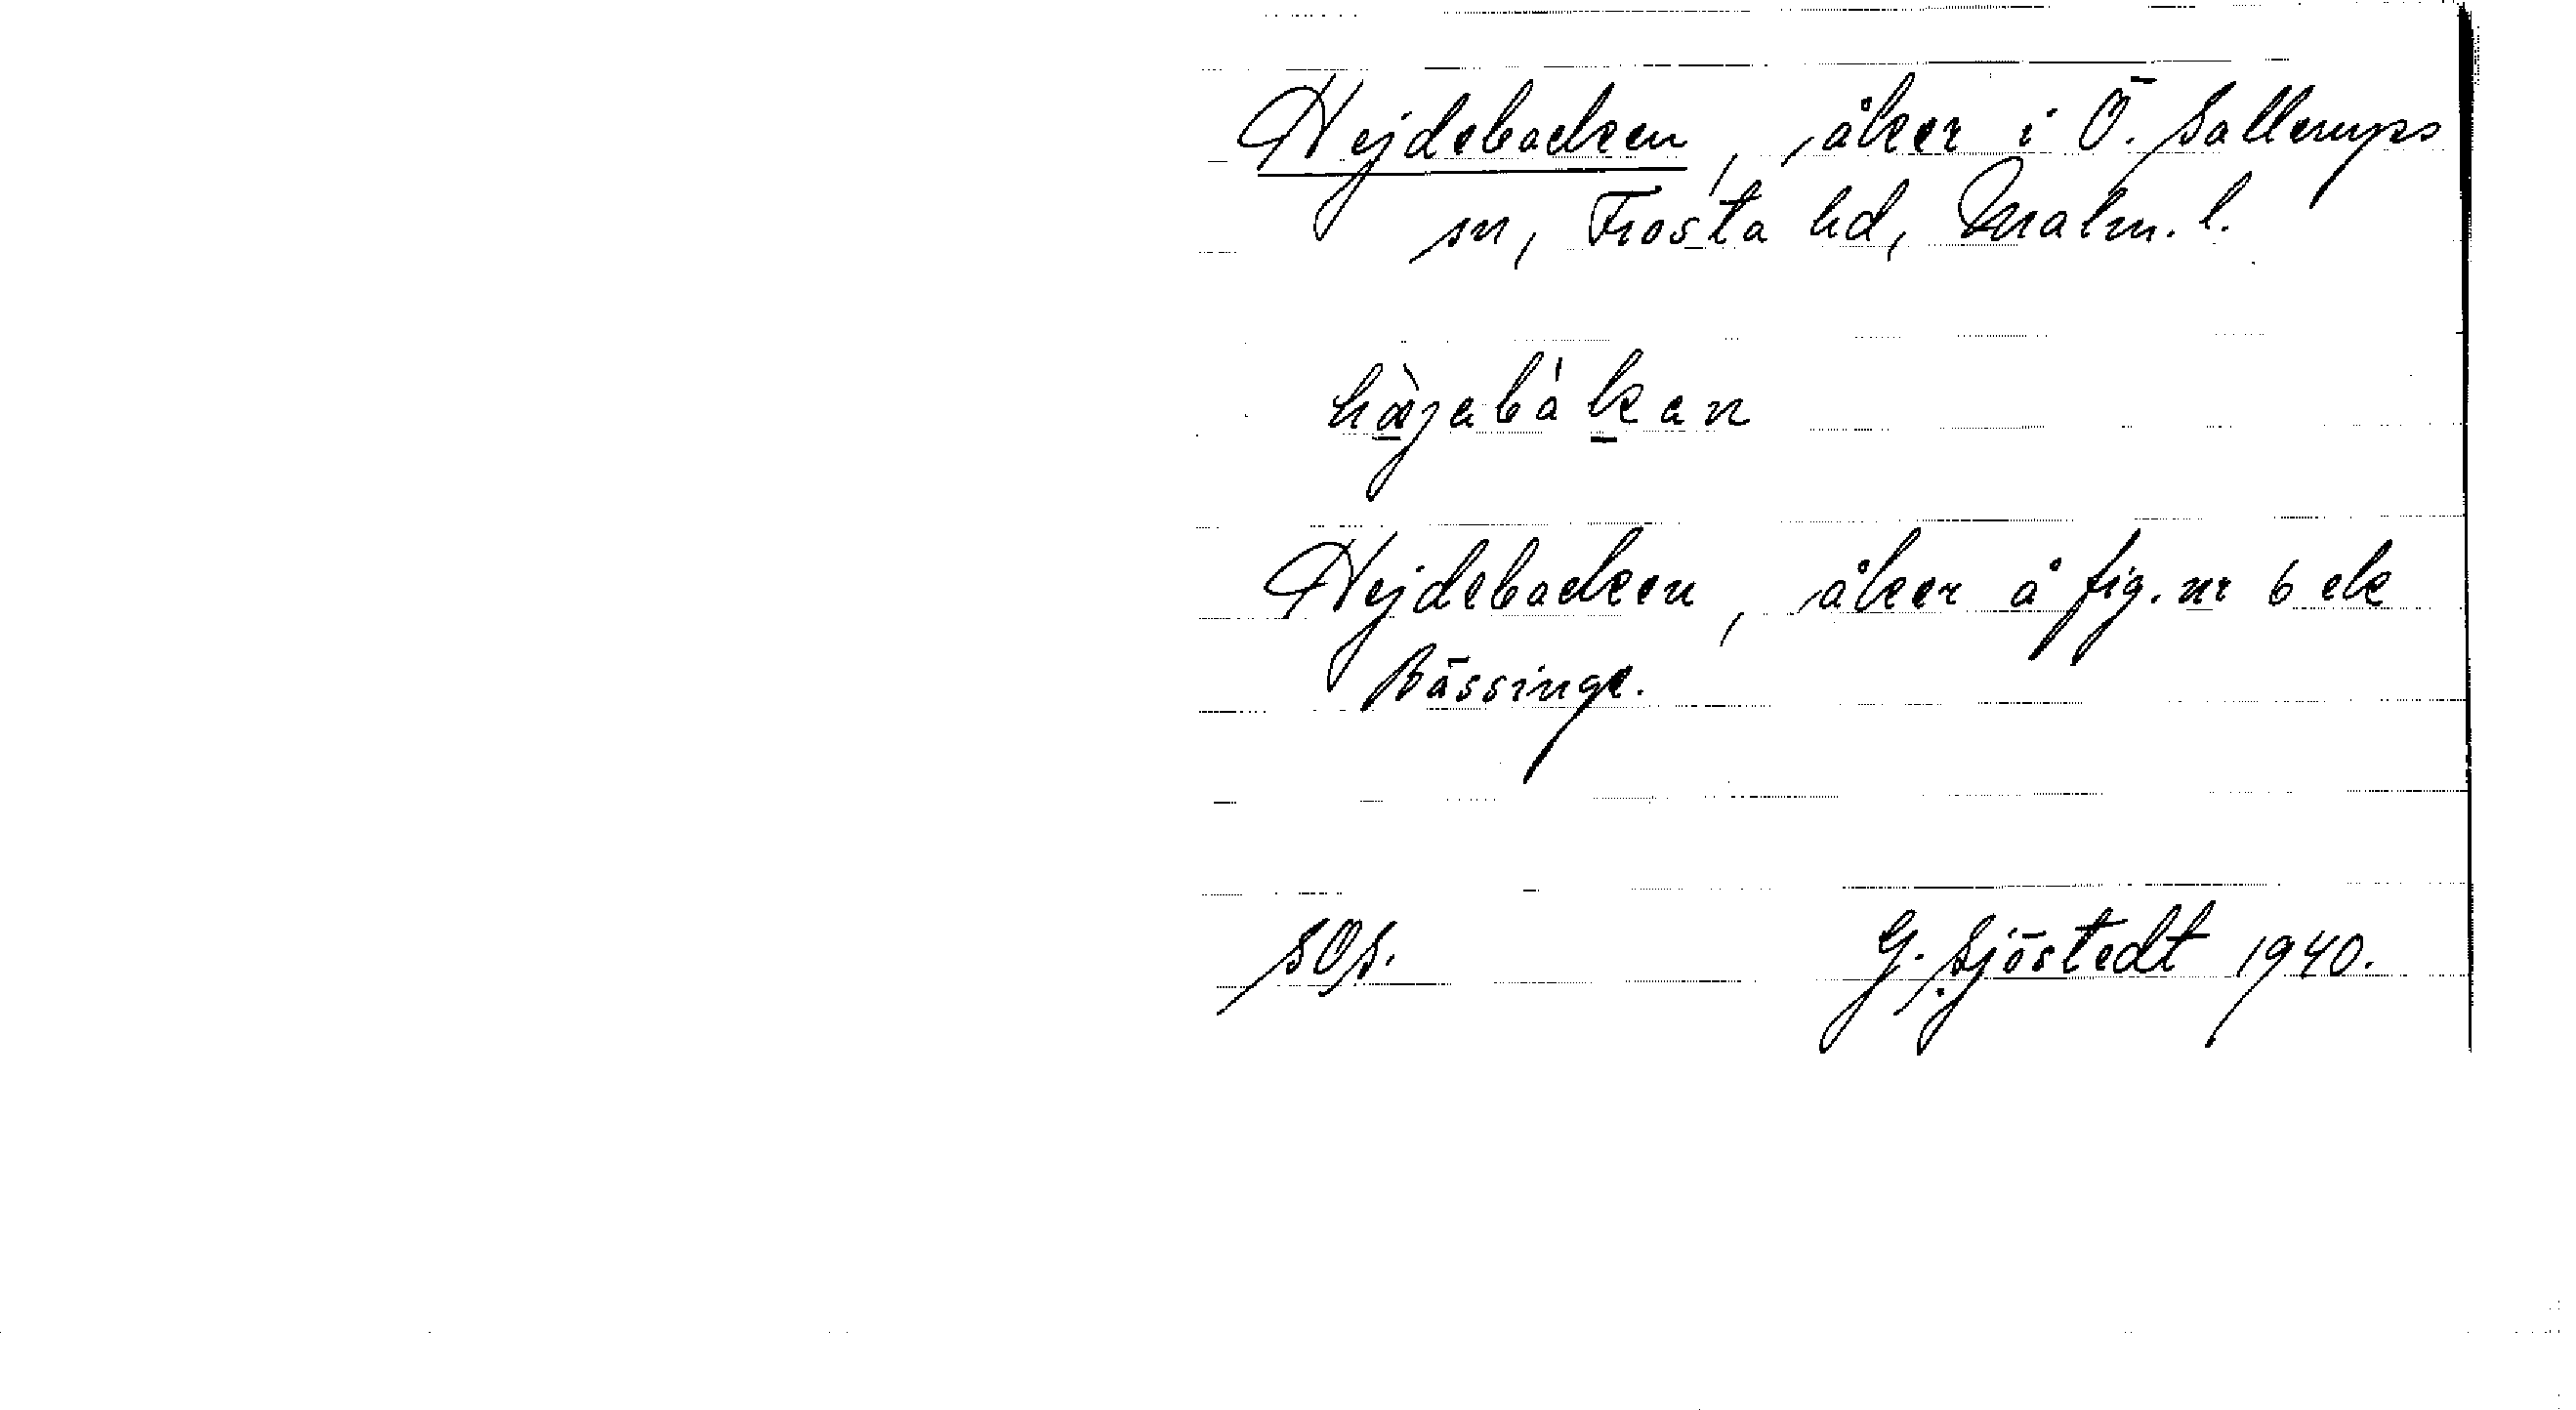 Hejdebacken, åker i Ö. Sallerups
sn, Frosta hd, Malm. l.
hæ̀jabàkan
Hejdebacken, åker å fig. nr 6 ek
Bässinge.
SOS.
G. Sjöstedt 1940.